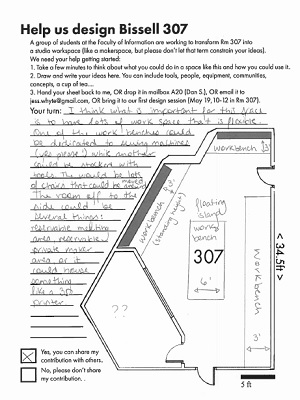 Help us design Bissell 307
A group of students at the Faculty of Information are working to transform Rm 307 into
a studio workspace (like a makerspace, but please don't let that term constrain your ideas).
We need your help getting started:
1. Take a few minutes to think about what you could do in a space like this and how you could use it.
2. Draw and write your ideas here. You can include tools, people, equipment, communities,
concepts, a cup of tea....
3. Hand your sheet back to me, OR drop it in mailbox A20 (Dan S.), OR email it to
jess.whyte@gmail.com, OR bring it to our first design session (May 19, 10-12 in Rm 307).
Your turn: I think what is important for this space
is to have lots of work space that is flexible.
One of the work benches could
be dedicated to sewing machines
(yes please!) while another
could be stocked with
tools. There would be lots
of chairs that could be moved
The room off to the
side could be
several things:
reservable meeting
area, reservable
private maker
area, or it
could house
something
like a 3D
printer.
workbench
3'
workbench
(standing height)
floating
island
work
bench
307
6'
workbench
3'
??
< 34.5ft >
5 ft
Yes, you can share my
contribution with others.
No, please don't share
my contribution. .